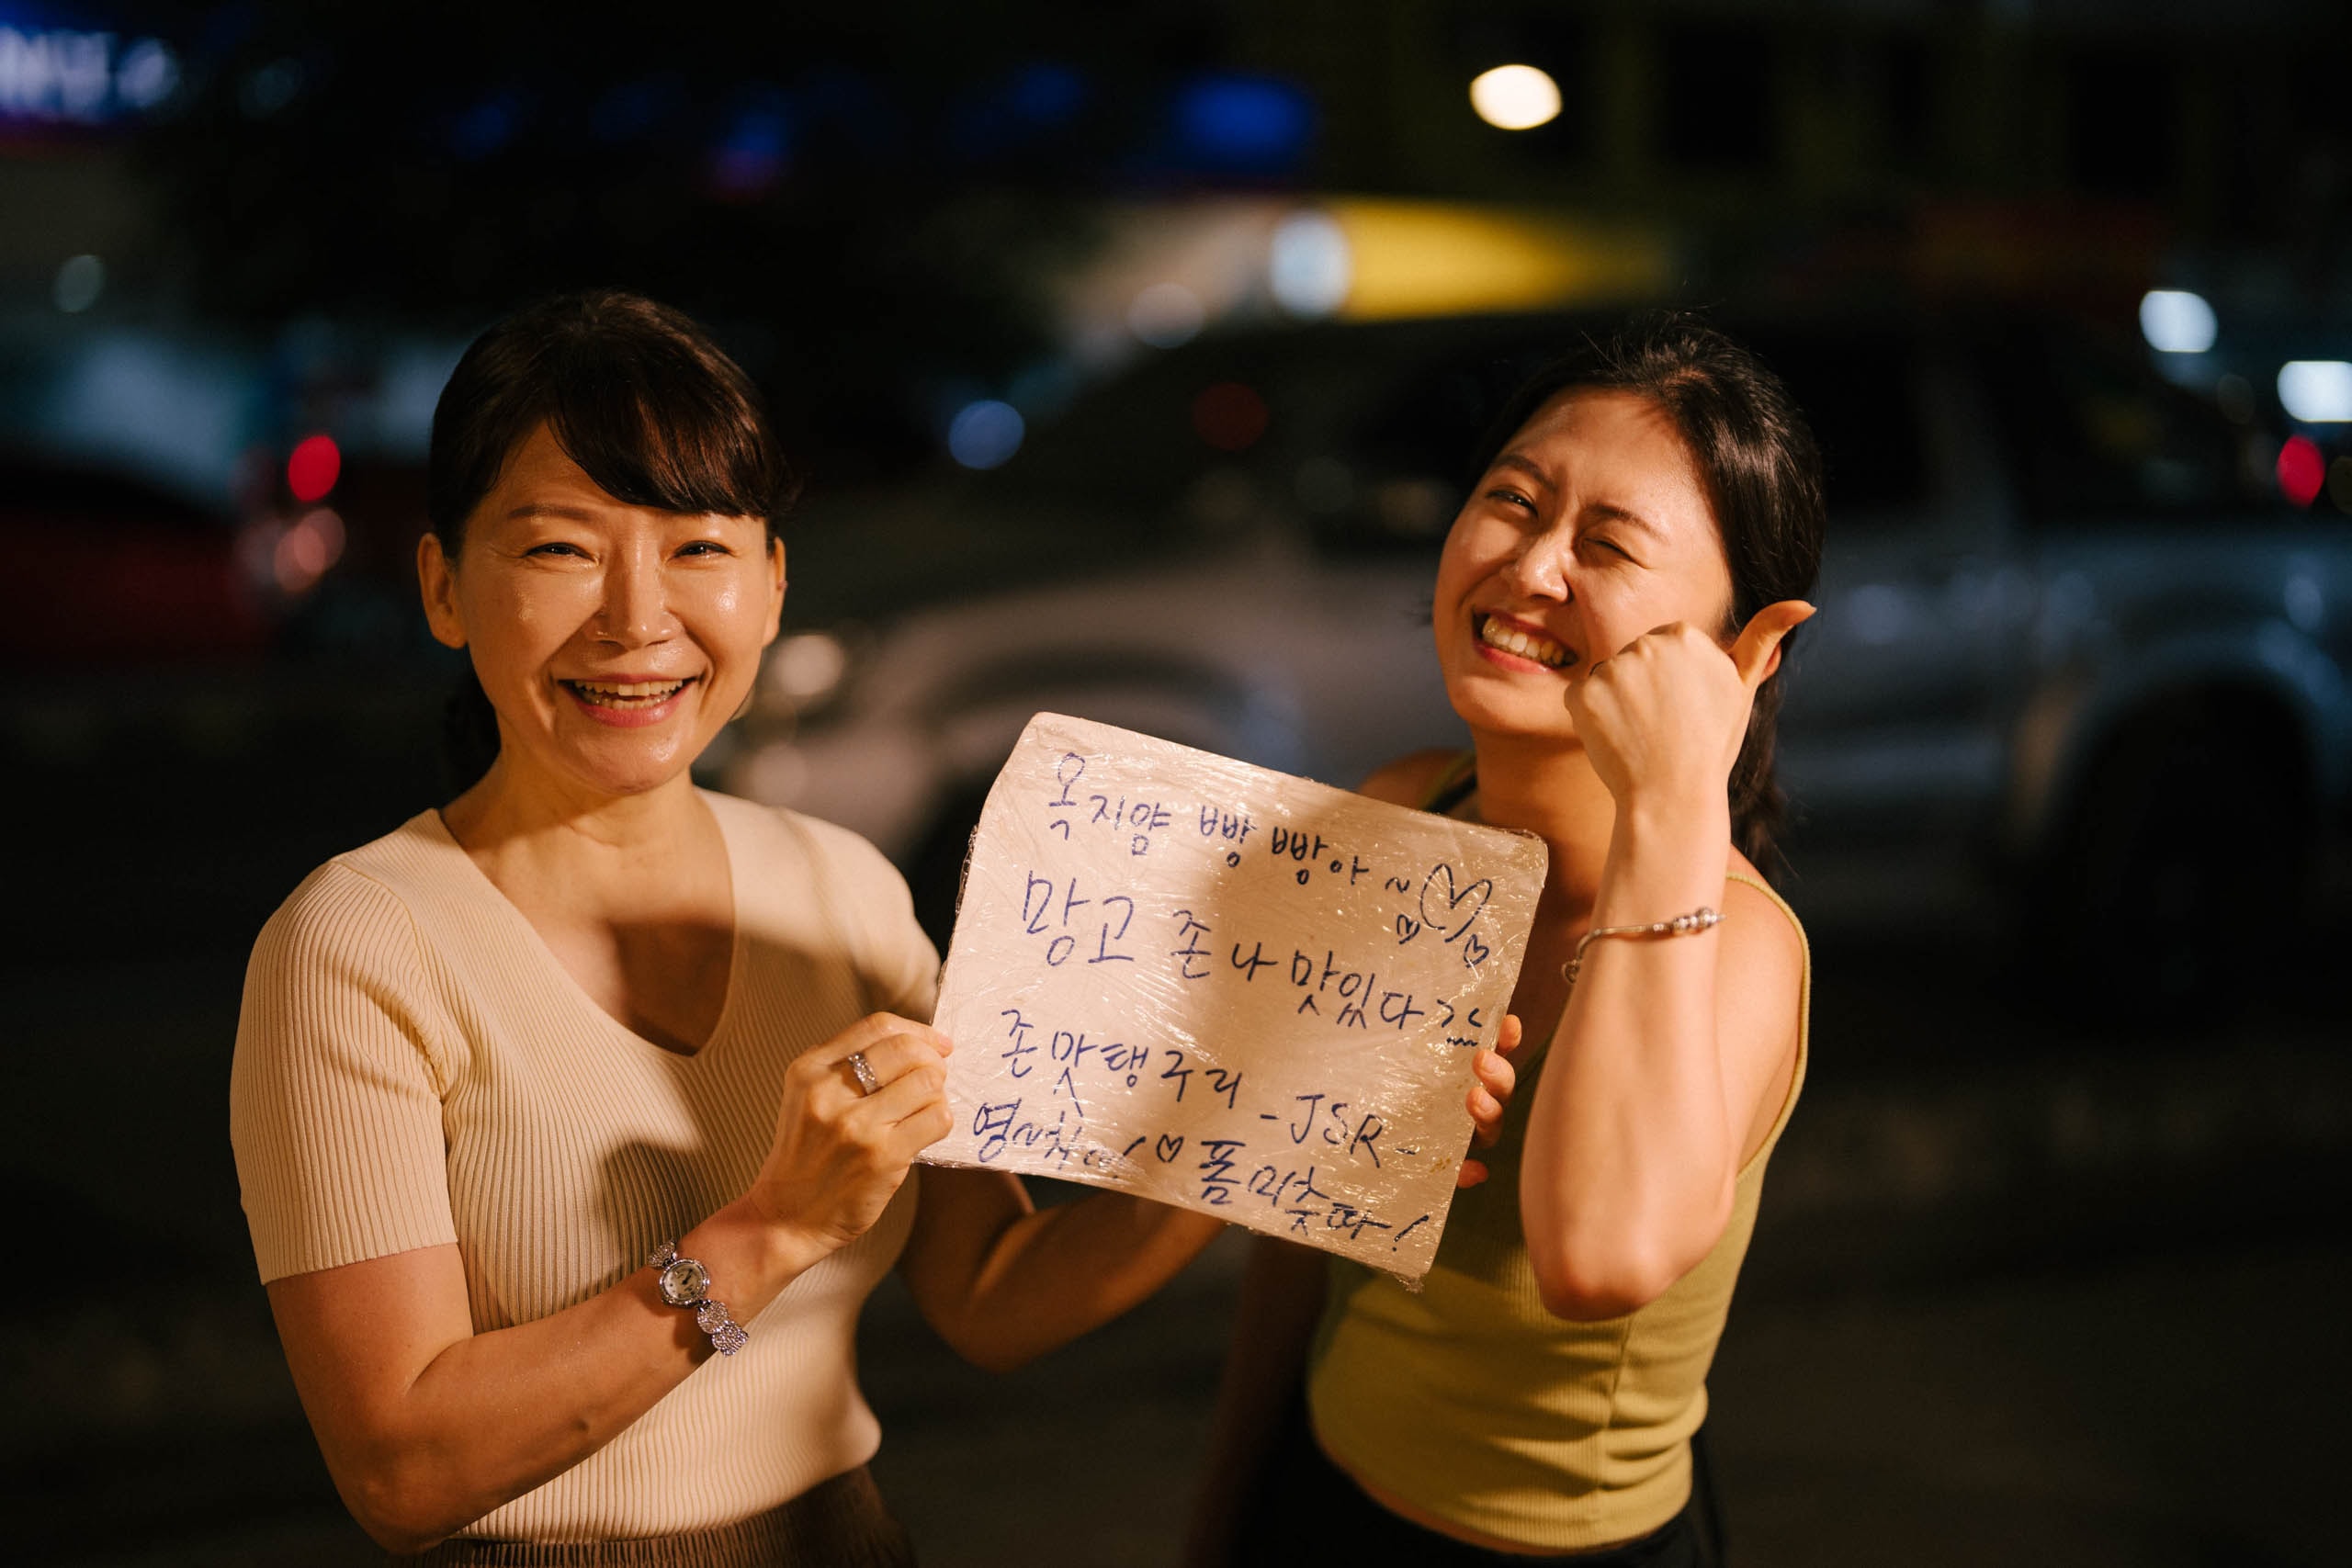 옥지얌 빵빵아~♡
망고 존나 맛있다><
존맛탱구리 -JSR-
명~차아! ♡ 폼미춋따!